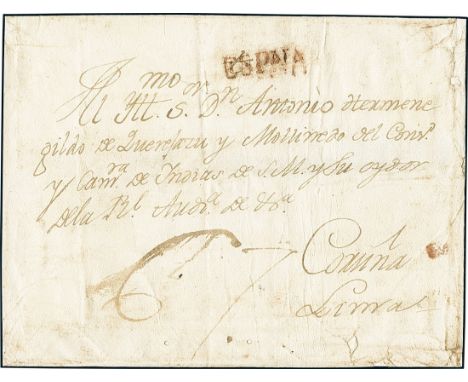 ESPAÑA
Al Ill.mo S.or D.n Antonio Hermene
gildo de Querejazu y Mollinedo del Cons.o
y Cam.ra de Indias de S.M. y Su oydor
de la R.l Aud.a de &.a
Coruña
Lima